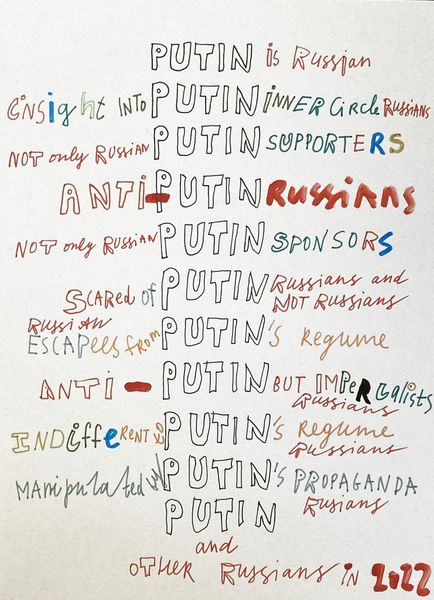 PUTIN is Russian
insight INTO PUTIN iNNER CiRcle RUSSIANS
NOT only RUSSIAN PUTIN SUPPORTERS
ANTI-PUTIN RUSSIANS
NOT only RUSSIAN PUTIN SPONSORS
SCARED of PUTIN RUSSIANS and
NOT RUSSIANS
RUSSIAN
ESCAPees from PUTIN's Regume
ANTI - PUTIN BUT IMPeRialists
Russians
INDiffeRENT to PUTIN's Regume
Russians
MANipulated by PUTIN's PROPAGANDA
Rusians
PUTIN
and
OTHER Russians in 2022